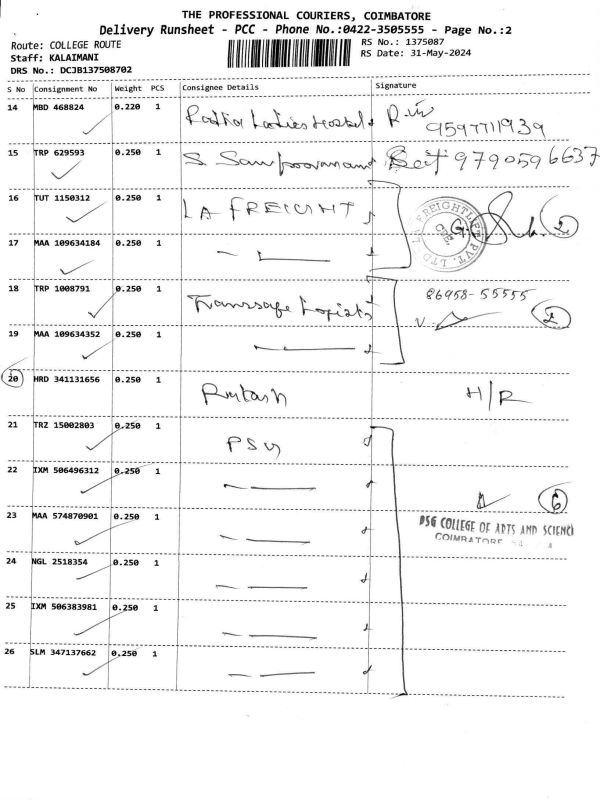 THE PROFESSIONAL COURIERS, COIMBATORE
Delivery Runsheet - PCC - Phone No.:0422-3505555 - Page No.:2
Route: COLLEGE ROUTE
RS No.: 1375087
Staff: KALAIMANI
RS Date: 31-May-2024
DRS No.: DCJB137508702
S No Consignment No Weight PCS Consignee Details Signature
14 MBD 468824 0.220 1 Ladies Hostel
9597711939
15 TRP 629593 0.250 1 S. 9790596637
16 TUT 1150312 0.250 1 LA FREIGHT
2
17 MAA 109634184 0.250 1
18 TRP 1008791 0.250 1 Transsafe Logistics 86958-55555
2
19 MAA 109634352 0.250 1
20 HRD 341131656 0.250 1 H/R
21 TRZ 15002803 0.250 1 PSG
22 IXM 506496312 0.250 1
6
23 MAA 574870901 0.250 1
PSG COLLEGE OF ARTS AND SCIENC
COIMBATORE
24 NGL 2518354 0.250 1
25 IXM 506383981 0.250 1
26 SLM 347137662 0.250 1